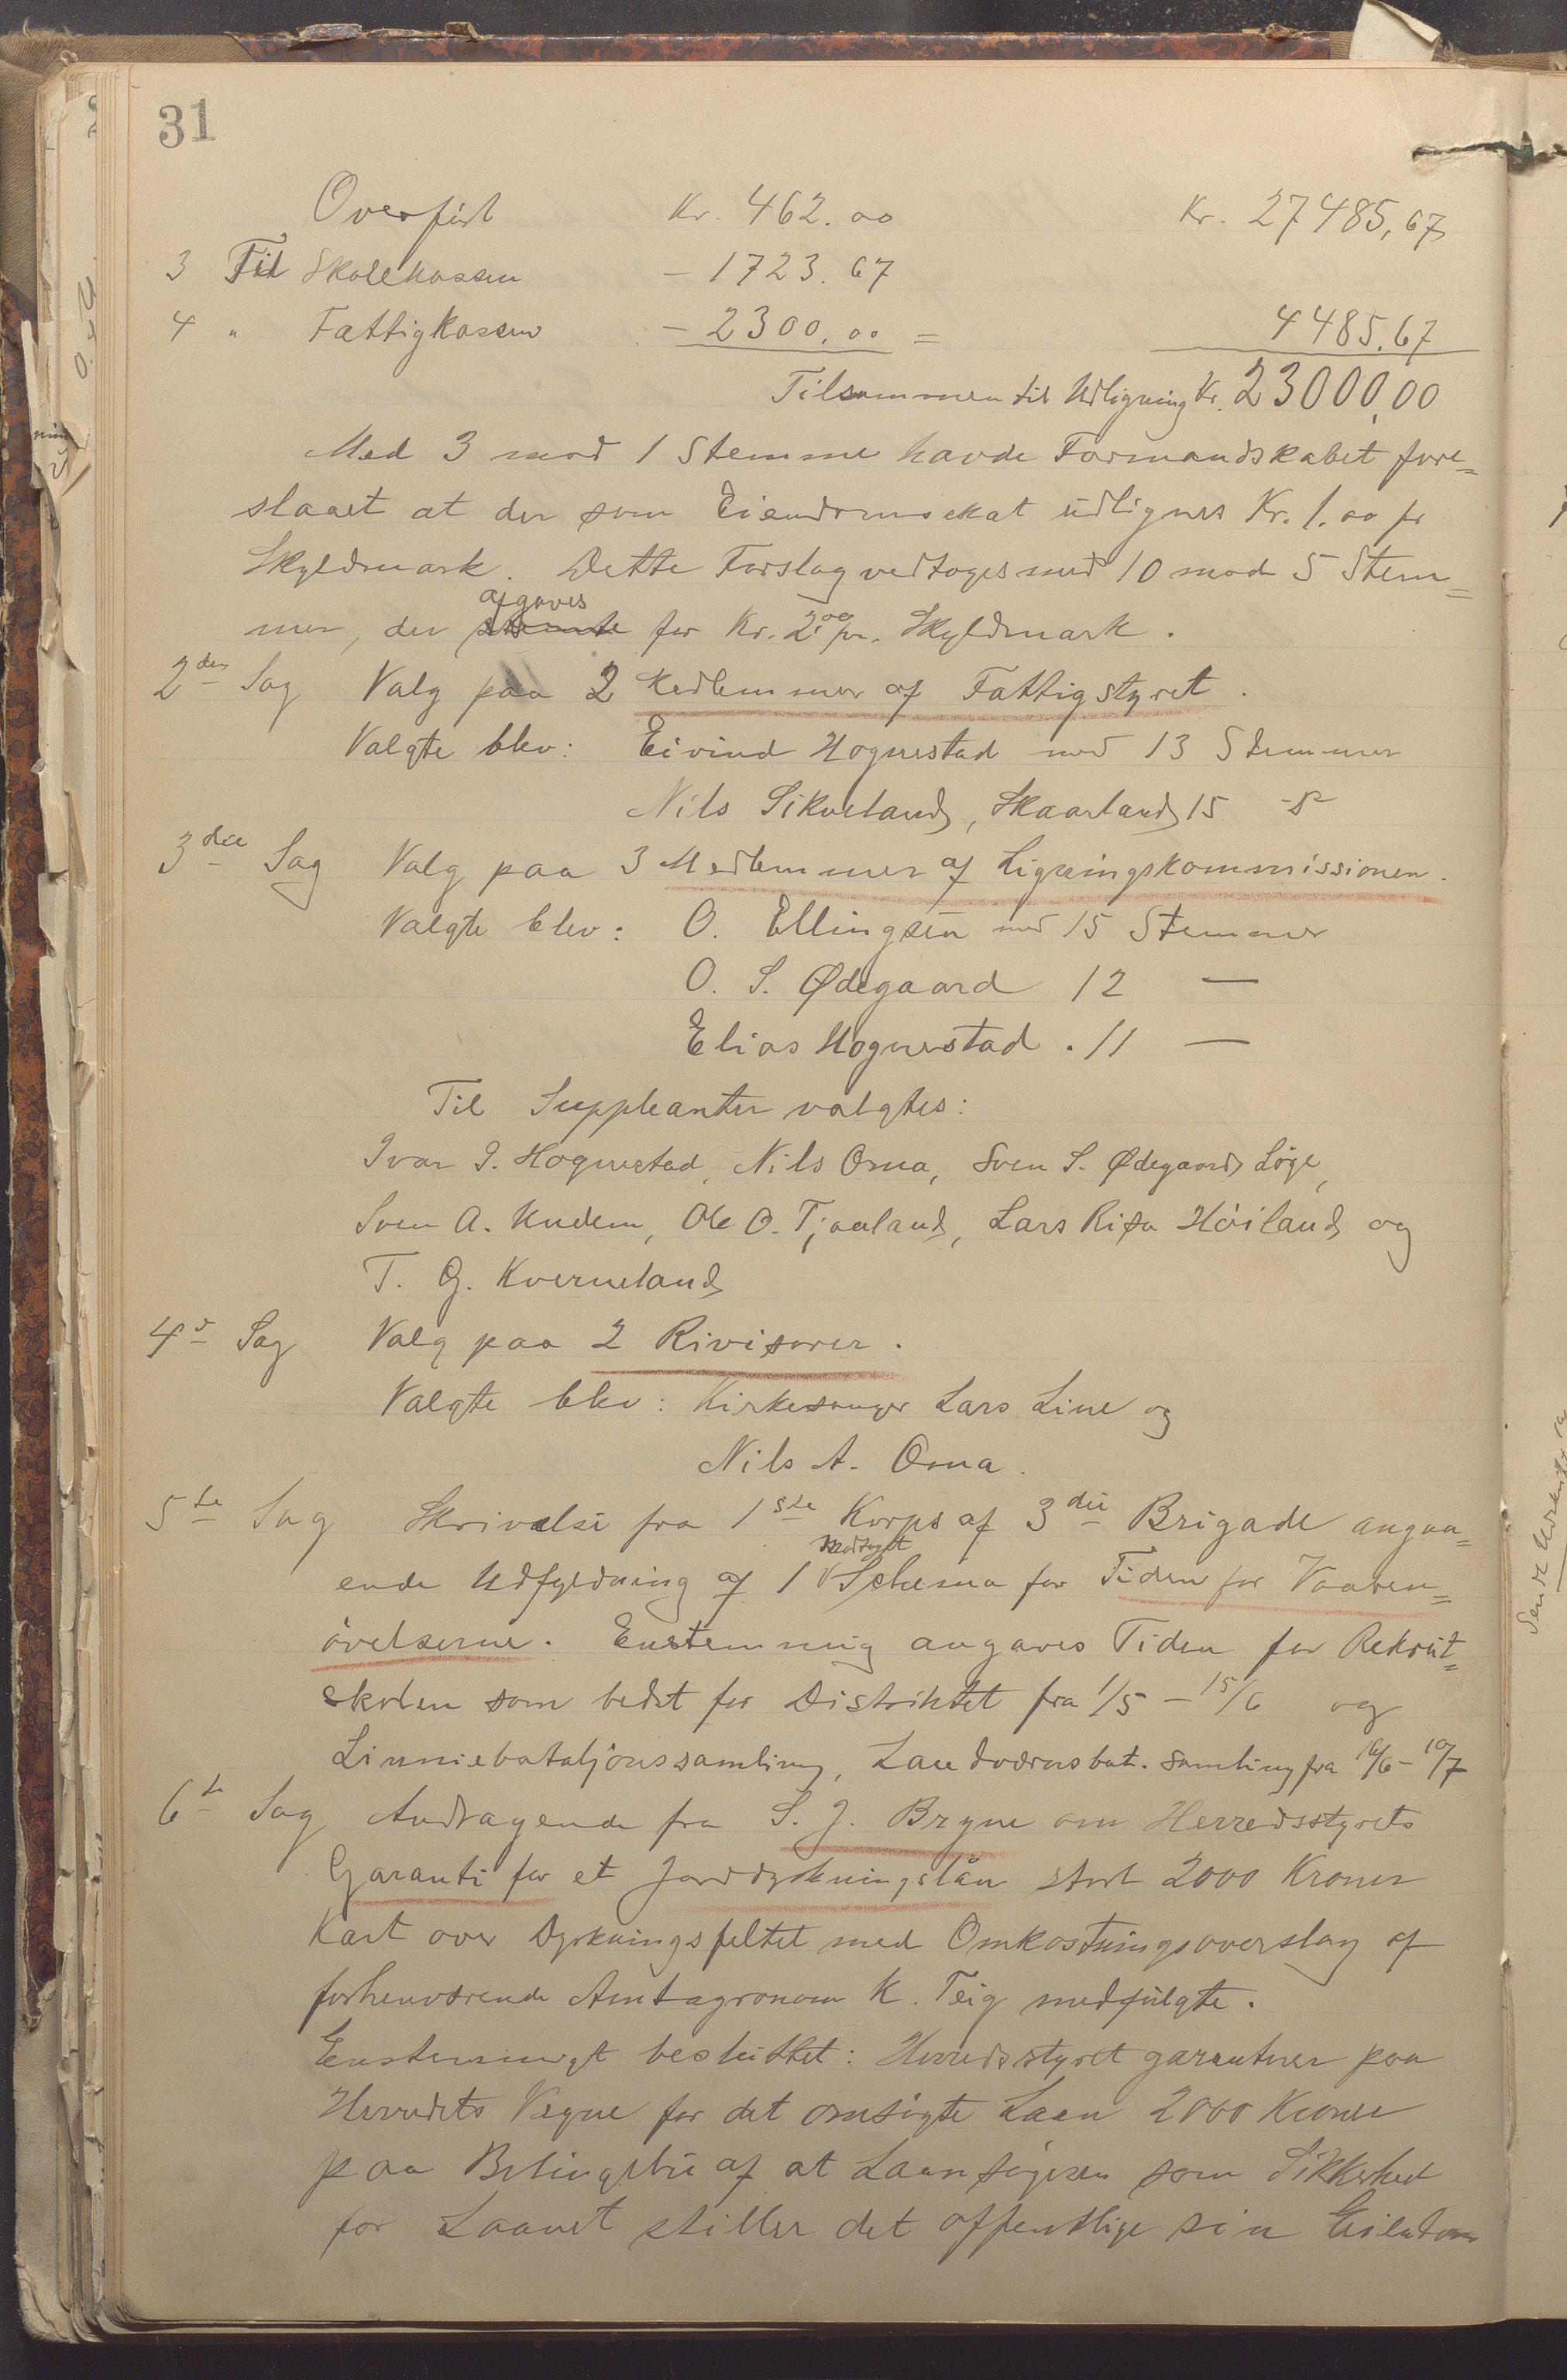 31
Overført Kr. 462.00 Kr. 27485,67
3 Til Skolekassen - 1723.67
4 " Fattigkassen - 2300,00 = 4485.67
Tilsammen til Udligning Kr. 23000,00
Med 3 mod 1 Stemme havde Formandskabet fore=
slaaet at der som Eiendomsskat udlignes Kr. 1.00 pr
Skyldmark. Dette Forslag vedtoges med 10 mod 5 Stem=
afgaves
mer, der stemte for Kr. 2.00 pr. Skyldmark.
2den Sag Valg paa 2 Medlemmer af Fattigstyret.
Valgte blev: Eivind Hognestad med 13 Stemmer
Nils Sikveland, Skaarland 15 -"-
3die Sag Valg paa 3 Medlemmer af Ligningskommissionen.
Valgte blev: O. Ellingsen med 15 Stemmer
O. S. Ødegaard 12 —
Elias Hognestad . 11 —
Til Suppleanter valgtes:
Ivar I. Hognestad, Nils Oma, Sven S. Ødegaard Løge,
Sven A. Undem, Ole O. Tjaaland, Lars Risa Høiland og
T. G. Kverneland
4de Sag Valg paa 2 Rivisorer.
Valgte blev: Kirkesanger Lars Line og
Nils A. Oma.
5te Sag Skrivelse fra 1ste Korps af 3die Brigade angaa=
modtaget
ende Udfyldning af 1 V Schema for Tiden for Vaaben=
øvelserne. Enstemmig angaves Tiden for Rekrut=
skolen som bedst for Distriktet fra 1/5 - 15/6 og
Linniebataljonssamling, Landværnsbat. samling fra 16/6 - 10/7
6te Sag Andragende fra S. J. Bryne om Herredsstyrets
Garanti for et Jorddyrkningslån stort 2000 Kroner
Kart over Dyrkningsfeltet med Omkostningsoverslag af
forhenværende Amtagronom K. Teig medfulgte.
Enstemmigt besluttet: Herredsstyret garanterer paa
Herredets Vegne for det omsøgte Laan 2000 Kroner
paa Betingelse af at Laansøgeren som Sikkerhed
for Laanet stiller det offentlige sin Eiendom